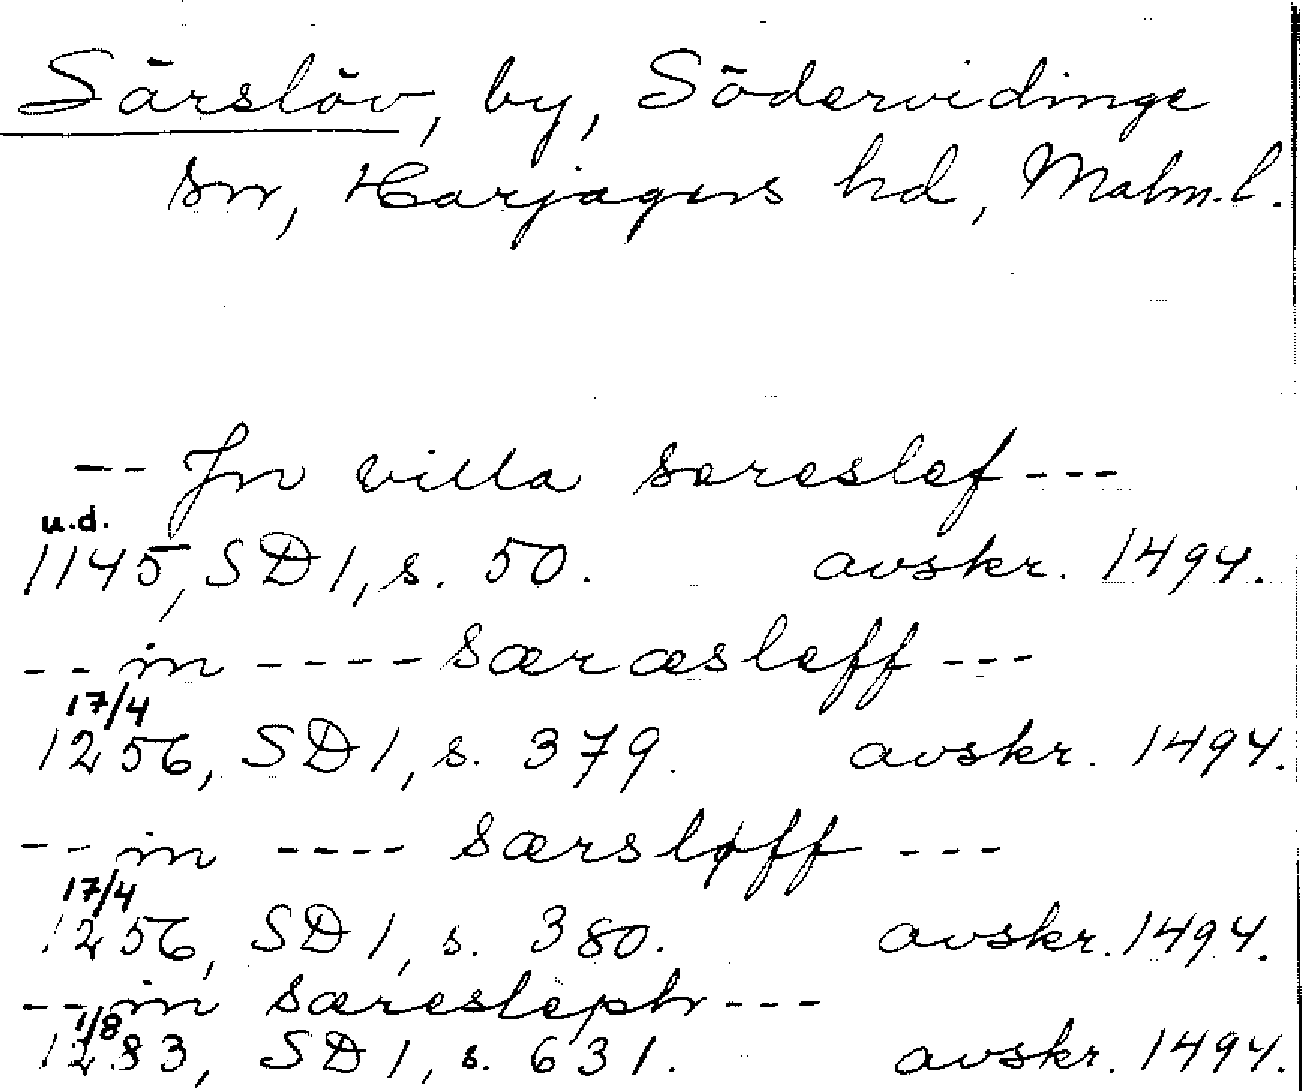 Särslöv, by, Södervidinge
sn, Harjagers hd, Malm. l.
-- Jn villa sereslef ---
u.d.
1145, SD 1, s. 50. avskr. 1494.
-- in ---- særæsleff ---
17/4
1256, SD 1, s. 379. avskr. 1494.
-- in ---- særsløff ---
17/4
1256, SD 1, s. 380. avskr. 1494.
-- in særesleph ---
1/8
1283, SD 1, s. 631. avskr. 1494.